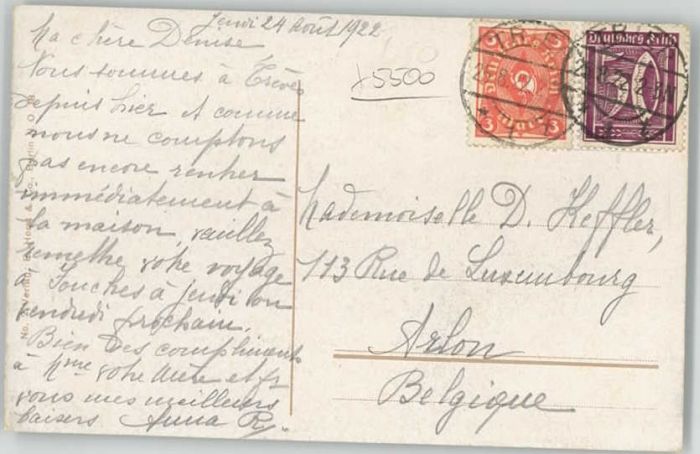 Jeudi 24 Août 1922
Ma chère Denise
Nous sommes à Trèves
depuis hier et comme
nous ne comptons
pas encore rentrer
immédiatement à
la maison, veuillez
remettre votre voyage
à Touches à jeudi ou
vendredi prochain.
Bien des compliments
à Mme votre Mère et pr
vous mes meilleurs
baisers Anna R.
x5500
Deutsches Reich
Mademoiselle D. Keffler,
113 Rue de Luxembourg
Arlon
Belgique